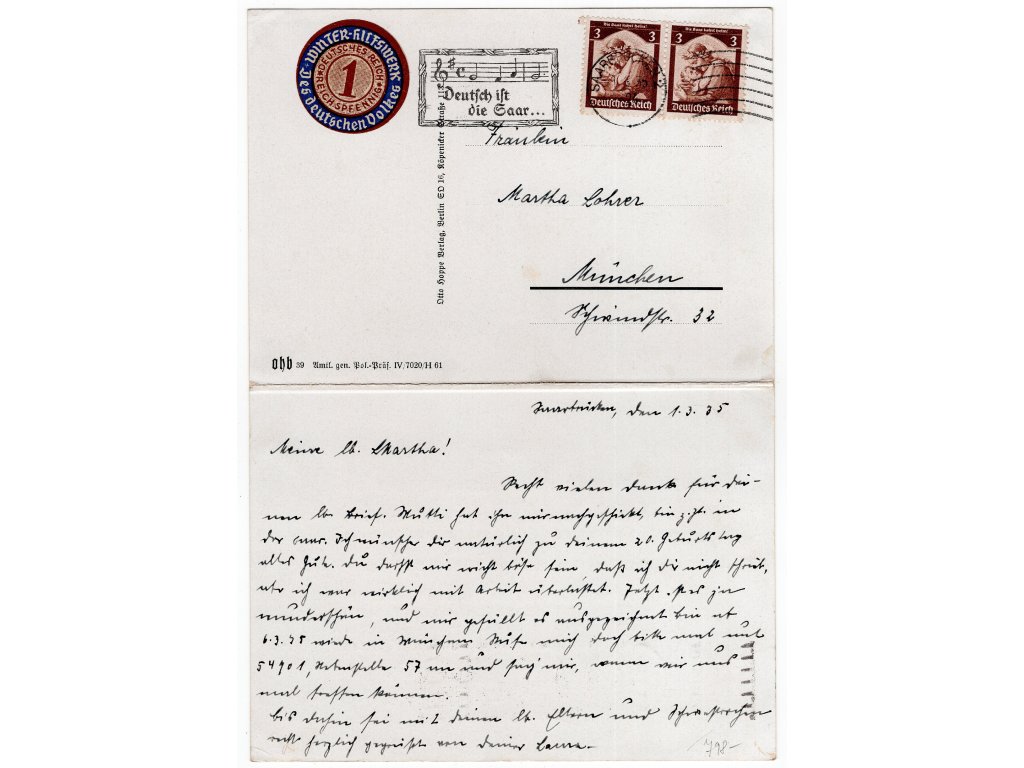 WINTER-HILFSWERK
Des deutschen Volkes
DEUTSCHES REICH
1
REICHSPFENNIG
Deutsch ist
die Saar...
Die Saar kehrt heim!
3 3
Deutsches Reich
Die Saar kehrt heim!
3 3
Deutsches Reich
Otto Hoppe Verlag, Berlin SO 16, Köpenicker Straße 112
Fräulein
Martha Lohrer
München
Schwindstr. 32
ohb 39 Amtl. gen. Pol.-Präs. IV/7020/H 61
Saarbrücken, den 1.3.35
Meine lb. Martha!
Recht vielen Dank für dei-
nen lb. Brief. Mutti hat ihn mir nachgeschickt, bin z.Zt. in
der Saar. Ich wünsche dir natürlich zu deinem 20. Geburtstag
alles Gute. Du darfst mir nicht böse sein, daß ich dir nicht schrieb,
aber ich war wirklich mit Arbeit überlastet. Jetzt ist es ja
wunderschön, und mir gefällt es ausgezeichnet bin ab
6.3.35 wieder in München Rufe mich doch bitte mal unt
54901, Nebenstelle 57 an und sag' mir, wann wir uns
mal treffen können.
Bis dahin sei mit deinen lb. Eltern und Schwesterchen
recht herzlich gegrüßt von deiner
798-